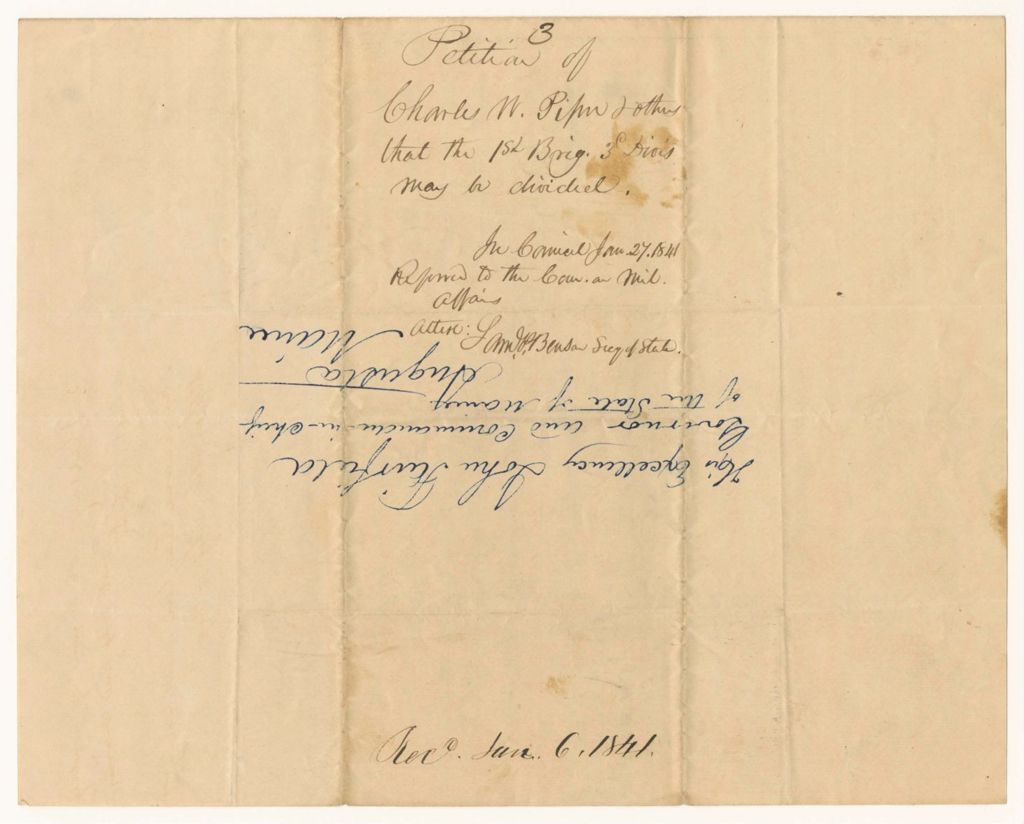 3
Petition of
Charles W. Piper & others
that the 1st Brig. 3d Divis
may be divided.
In Council Jan. 27. 1841
Referred to the Com. on Mil.
Affairs
Attest: Saml. P. Benson Secy of State.
His Excellency John Fairfield
Governor and Commander-in-Chief
of the State of Maine
Augusta
Maine
Recd. Jan. 6, 1841.